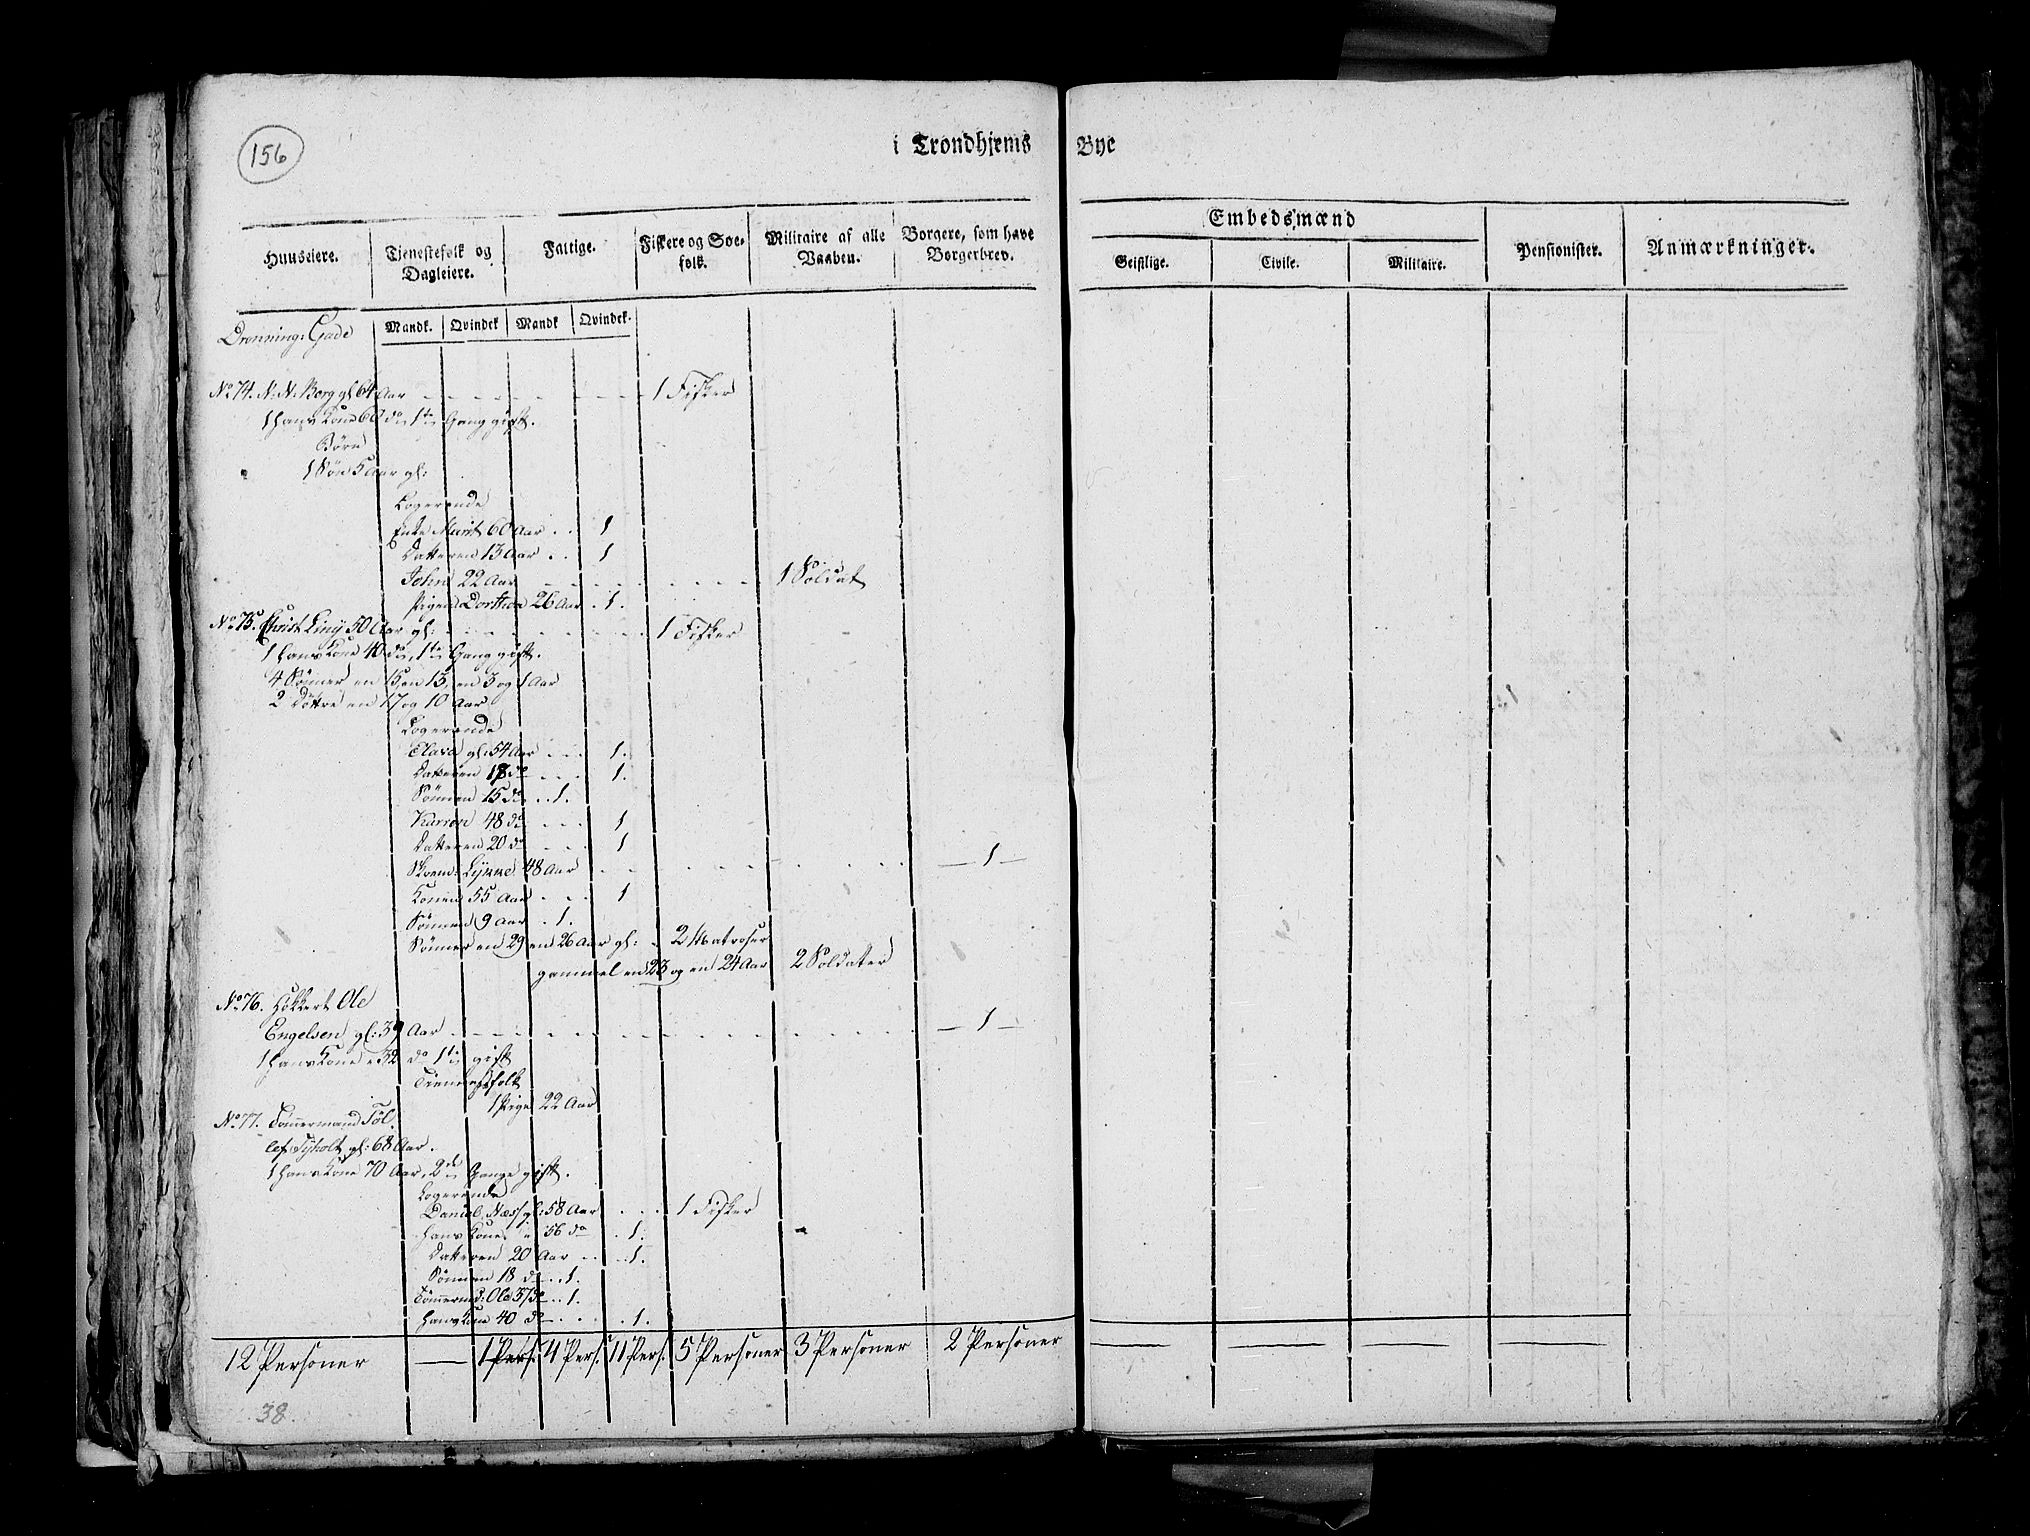 156
i Trondhjems Bye
Huuseiere. Tjenestefolk og Dagleiere. Fattige. Fiskere og Søe-folk. Militaire af alle Vaaben. Borgere, som have Borgerbrev. Embedsmænd Geistlige. Civile. Militaire. Pensionister. Anmærkninger.
Mandk. Qvindek Mandk Qvindek.
Dronning: Gade
No 74. N. N. Borg gl 64 Aar - - - - - - 1 Fisker
1 Hans Kone 60 do 1te Gang gift.
Børn
1 Søn 5 Aar gl:
Logerende
Enke Marit 60 Aar . . 1
Datteren 13 Aar . . 1
John 22 Aar - - - - - - 1 Soldat
Pigen Dorthea 26 Aar . 1.
No 75. Christ Liny 50 Aar gl: - - - - - - 1 Fisker
1 Hans Kone 40 do, 1te Gang gift.
4 Sønner en 15, en 13, en 3 og 1 Aar
2 Døttre en 17 og 10 Aar
Logerende
Clara gl: 54 Aar - - - 1.
Datteren 18 do - - - 1.
Sønnen 15 do . . 1.
Karren 48 do - - - 1
Datteren 20 do - - - 1
Skoem: Lykke 48 Aar - - - - - - - 1 -
Konen 55 Aar - - - 1
Sønnen 9 Aar . 1.
Sønner en 29 en 26 Aar gl: - 2 Matroser
gammel en 23 og en 24 Aar 2 Soldater
No 76. Høkkert Ole
Engelsen gl: 39 Aar - - - - - - - 1 -
1 Hans Kone 32 do 1te gift
Tienestfolk
1 Pige 22 Aar
No 77. Tømmermand Tol
lef Tyholt gl: 68 Aar.
1 Hans Kone 70 Aar, 2de Gange gift.
Logerende
Daniel Næss gl: 58 Aar . . . 1 Fisker
Hans Kone 56 do . 1.
Datteren 20 Aar . . . . 1.
Sønnen 18 do . . 1.
Tømmermd: Ole 37 do . . 1.
Hans Kone 40 do - . . . . 1.
12 Personer — 1 Pers. 4 Pers. 11 Pers. 5 Personer 3 Personer 2 Personer — — — —
38.